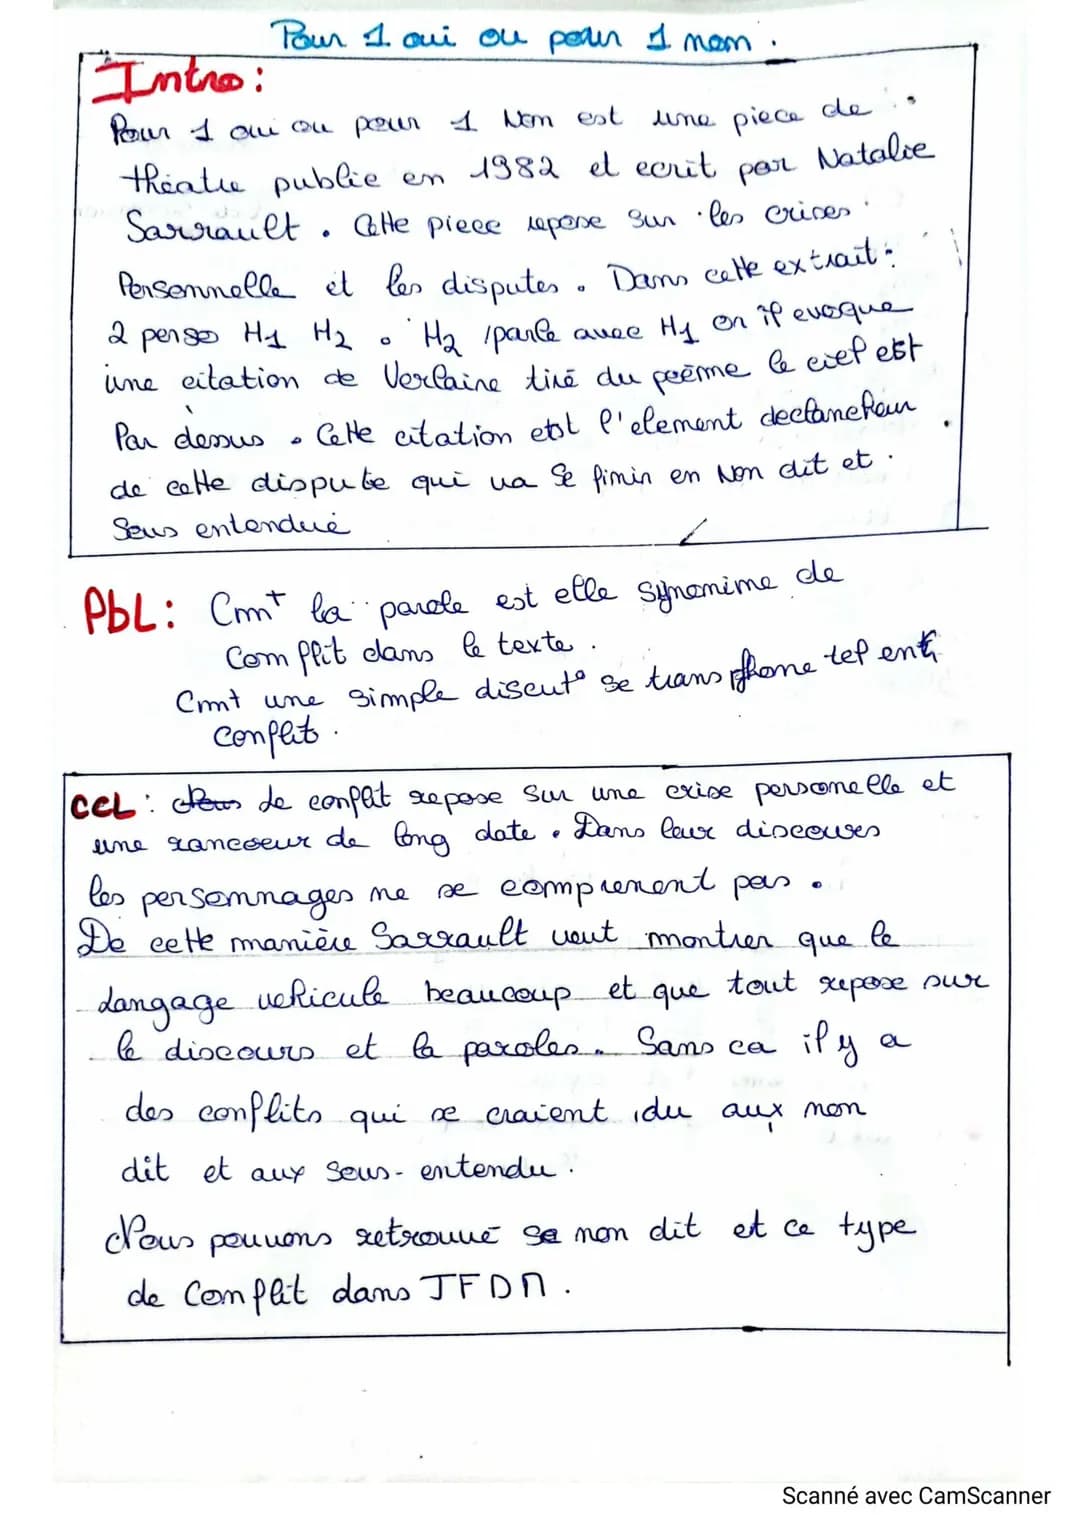 Pour 1 oui ou pour 1 nom.
Intro:
Pour 1 oui ou pour 1 Non est une piece de
théatre publie en 1982 et ecrit par Natalie
Sarrault. Cette piece repose sur les crises
Personnelle et les disputes. Dans cette extrait:
2 perso H1 H2. H2 parle avec H1 on if evoque
une citation de Verlaine tiré du poème le ciel est
Par dessus. Cette citation est l'element declancheur
de cette dispute qui va se finir en Non dit et
Sous entendué
PbL: Cmt la parole est elle synomime de
Comflit dans le texte.
Cmt une simple discut° se transphome tel en
conflit.
CCL: de conflit repose sur une crise personelle et
une rancoeur de long date. Dans leur discours
les personnages ne se comprenent pas.
De cette manière Sarrault veut montrer que le
Langage vehicule beaucoup et que tout repose sur
le discours et la paroles. Sans ca il y a
des conflits qui se craient du aux non
dit et aux sous-entendu.
Nous pouvons retrouvé se non dit et ce type
de Comflit dans JFDM.
Scanné avec CamScanner